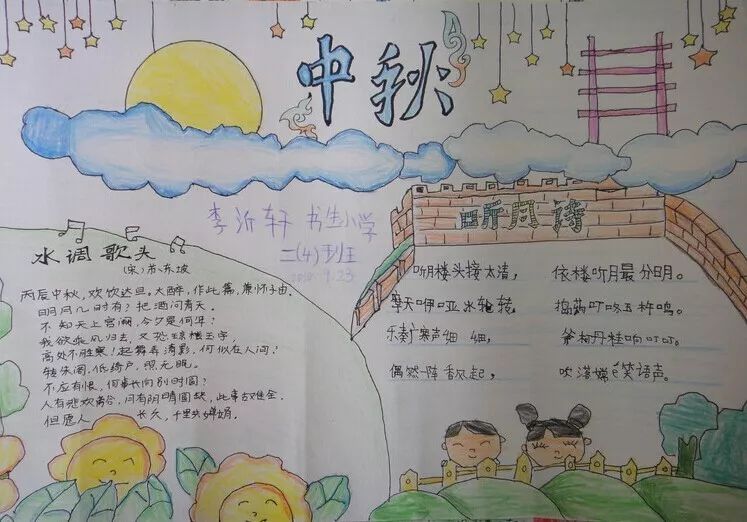 中秋
李沂轩 书生小学
二(4)班
9.23
水调歌头
(宋)苏东坡
丙辰中秋,欢饮达旦,大醉,作此篇,兼怀子由。
明月几时有?把酒问青天。
不知天上宫阙,今夕是何年?
我欲乘风归去,又恐琼楼玉宇,
高处不胜寒!起舞弄清影,何似在人间?
转朱阁,低绮户,照无眠。
不应有恨,何事长向别时圆?
人有悲欢离合,月有阴晴圆缺,此事古难全。
但愿人 长久,千里共婵娟。
听月诗
听月楼头接太清, 依楼听月最分明。
摩天咿哑冰轮转, 捣药叮咚玉杵鸣。
乐奏广寒声细 细, 斧柯丹桂响叮叮。
偶然一阵香风起, 吹落嫦娥笑语声。